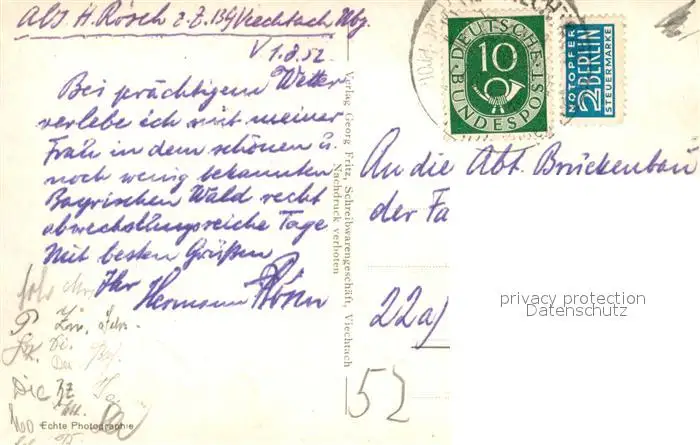 Abs. H. Rösch z. Z. 13b Viechtach Ndb.
V 1.8.52
Bei prächtigem Wetter
verlebe ich mit meiner
Frau in dem schönen u.
noch wenig bekannten
Bayrischen Wald recht
abwechslungsreiche Tage
Mit besten Grüßen
Ihr
Hermann Rösch
Echte Photographie
Verlag Georg Fritz, Schreibwarengeschäft, Viechtach
Nachdruck verboten
DEUTSCHE
10
BUNDESPOST
NOTOPFER
2 BERLIN
STEUERMARKE
An die Abt. Brückenbau
der Fa
22a)
52
privacy protection
Datenschutz